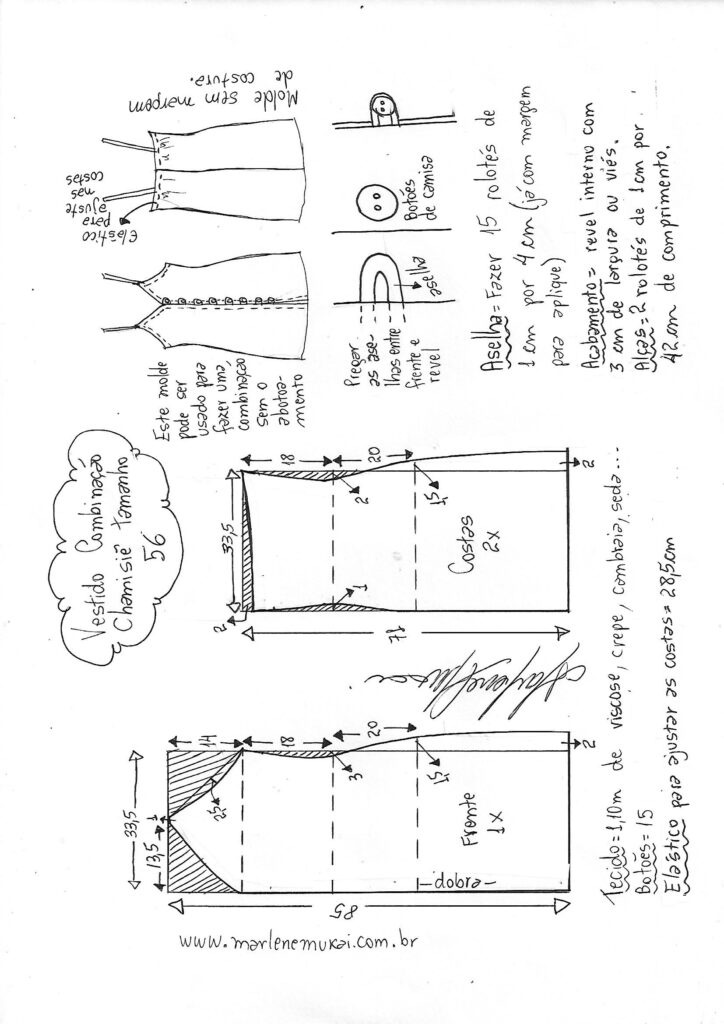 Vestido Combinação
Chamisiê tamanho
56
Este molde
pode ser
usado para
fazer uma
combinação
sem o
abotoa-
mento
Elástico
para
ajuste
nas
costas
Molde sem margem
de costura.
Pregar
as ase-
lhas entre
frente e
revel
aselha
Botões
de camisa
Aselha = Fazer 15 rolotés de
1 cm por 4 cm (já com margem
para aplique)
Acabamento = revel interno com
3 cm de largura ou viés.
Alças = 2 rolotés de 1 cm por
42 cm de comprimento.
33,5
2
18
20
2
1
1,5
Costas
2x
71
2
33,5
13,5
1
14
2,5
18
20
3
1,5
Frente
1x
-dobra-
85
2
www.marlenemukai.com.br
Tecido = 1,10m de viscose, crepe, cambraia, seda...
Botões = 15
Elástico para ajustar as costas = 28,5cm